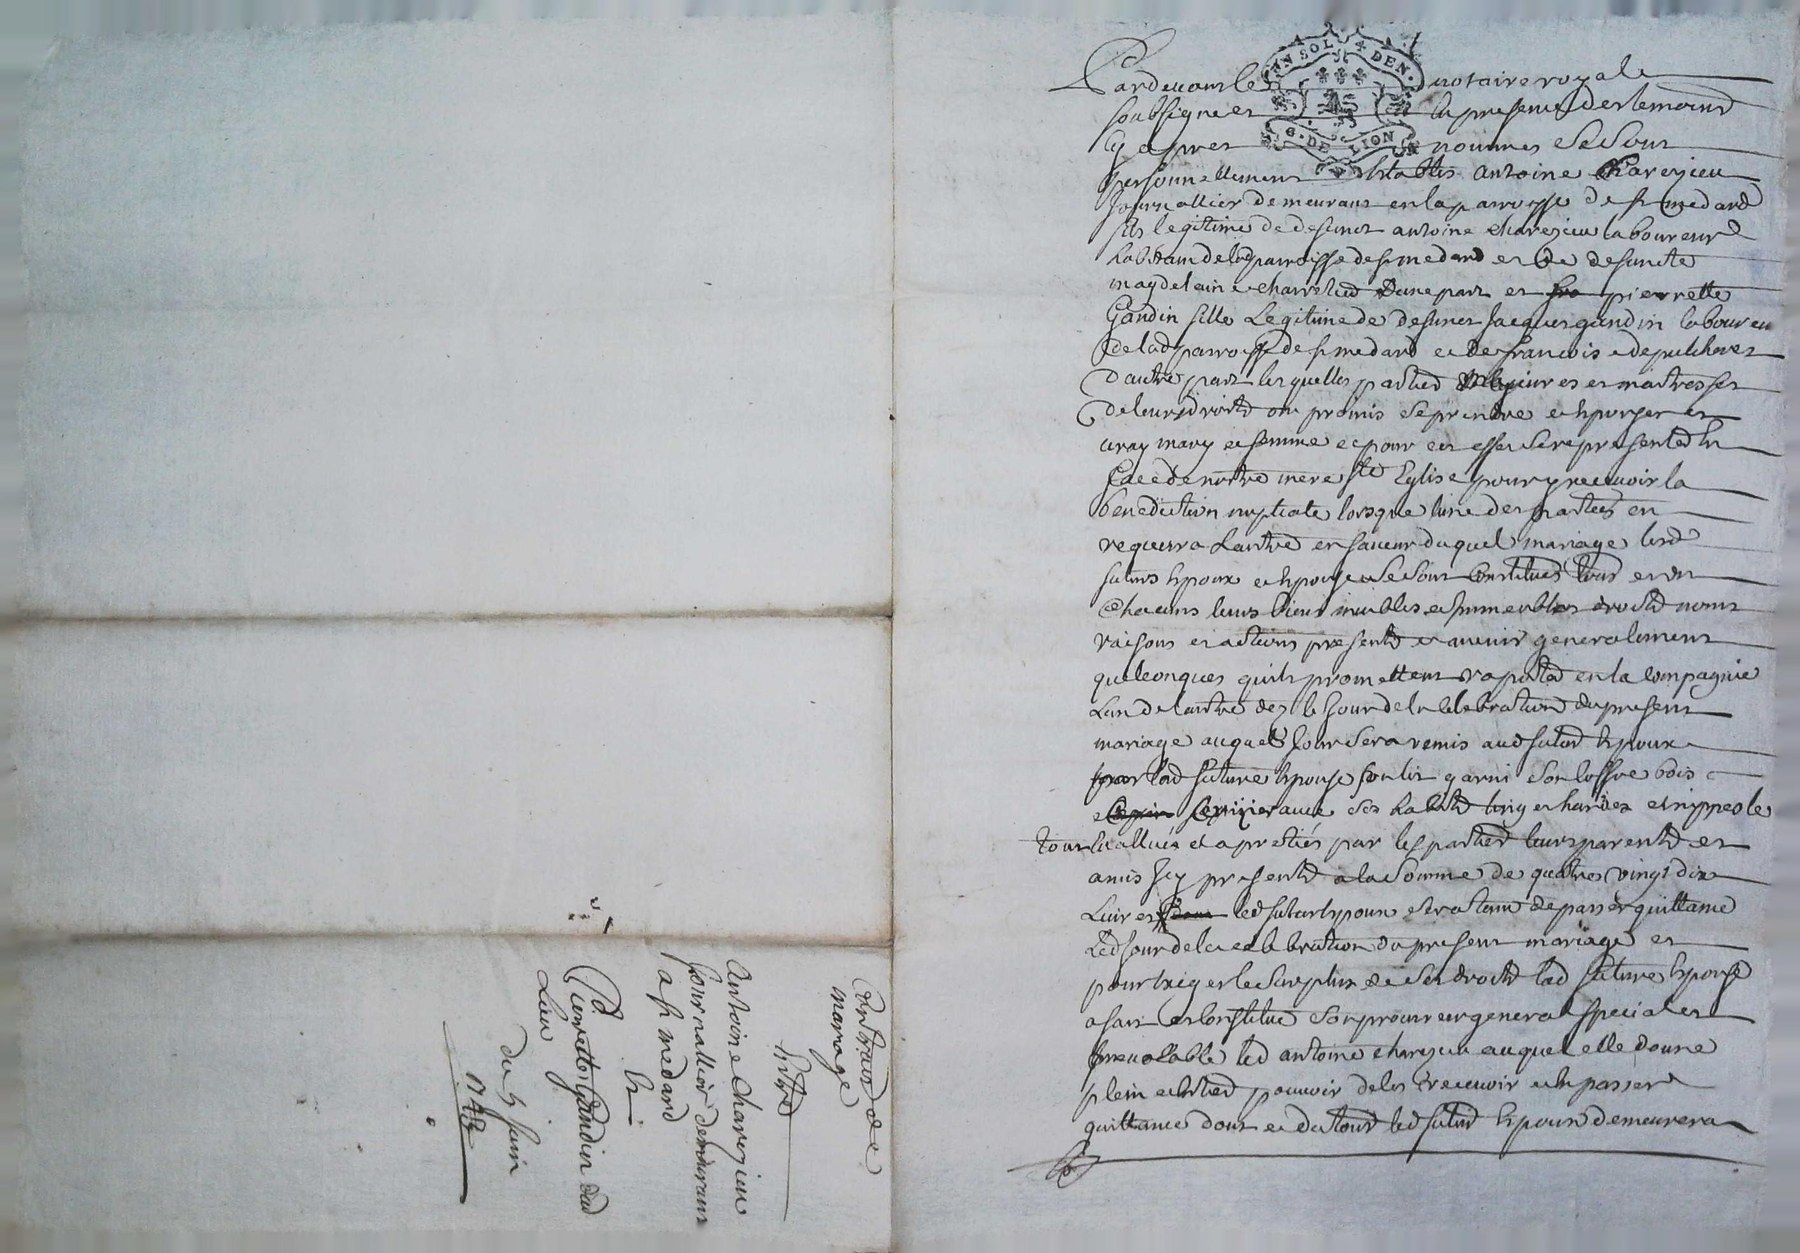 UN SOL 4 DEN.
G. DE LION
Pardeuant le notaire royale
soubsigné et en presence des temoins
cy apres nommes se sont
personnellement establis antoine Charezieu
journallier demeurant en la parroisse de st medard
fils legitime de defunct antoine charezieu laboureur
habitant de lad parroisse de st medard et de defuncte
magdelaine charretier d'une part et pierrette
Gandin fille Legitime de defunct Jacques gandin laboureu
de lad parroisse de st medard et de francoise depulchoner
d'autre part lesquelles parties Majeures et maitresses
de leurs droits ont promis se prendre et epouser en
vray mary et femme et pour cet effet se representer en
face de notre mere ste Eglise pour y receuoir la
benediction nuptiale lorsque l'une des parties en
requerra Lautre en faueur duquel mariage lesd
futurs epoux et epouse se sont Constitués tous et un
Chacuns leurs biens meubles et immeubles droits noms
raisons et actions presents et auenir generalement
quelconques quils promettent raporter en la compagnie
Lun de lautre dez le jour de la celebration du present
mariage auquel jour sera remis aud futur epoux
par lad future epouse son lit garni son coffre bois
cerizier auec ses habits linge hardes et nippes le
tout eualués et apretiés par les parties leurs parents et
amis icy presents a la somme de quatres vingt dix
Liures led futur epoux sera tenu de passer quittance
Led jour de la celebration du present mariage et
pour exiger le surplus de ses droits lad future epouse
a fait et constitué son procureur general special et
irreuocable led antoine charezieu auquel elle donne
plein et entier pouvoir de les receuoir et en passer
quittance dont et du tout led futur epoux demeurera
Contract de
mariage
Entre
Antoine Charezieu
journallier demeurant
a st medard
Et
Pierrette Gandin dud
Lieu
du 5 juin
1748